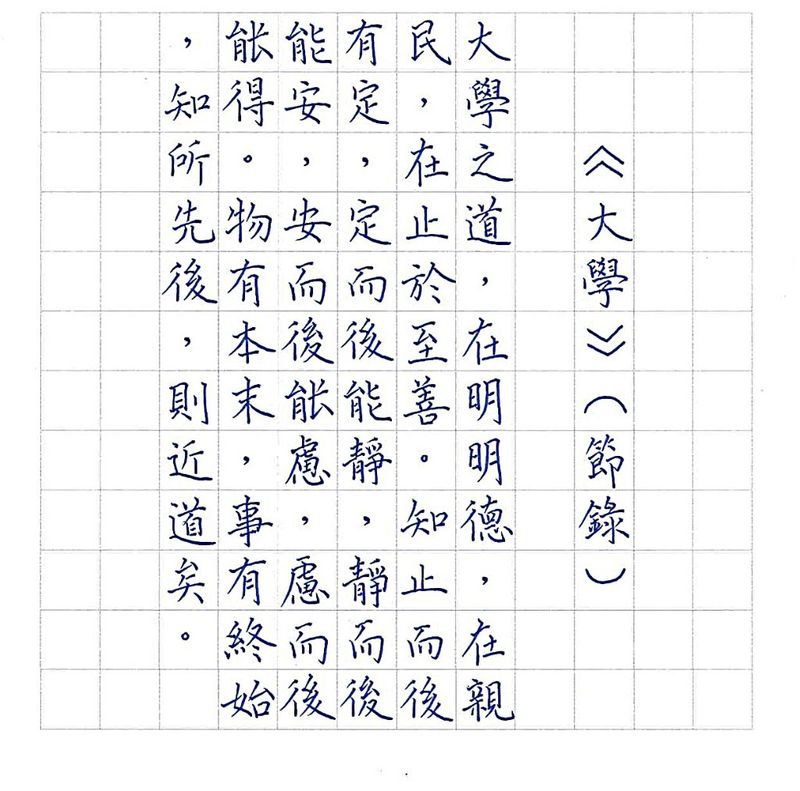 《大學》（節錄）
大學之道，在明明德，在親
民，在止於至善。知止而後
有定，定而後能靜，靜而後
能安，安而後能慮，慮而後
能得。物有本末，事有終始
，知所先後，則近道矣。